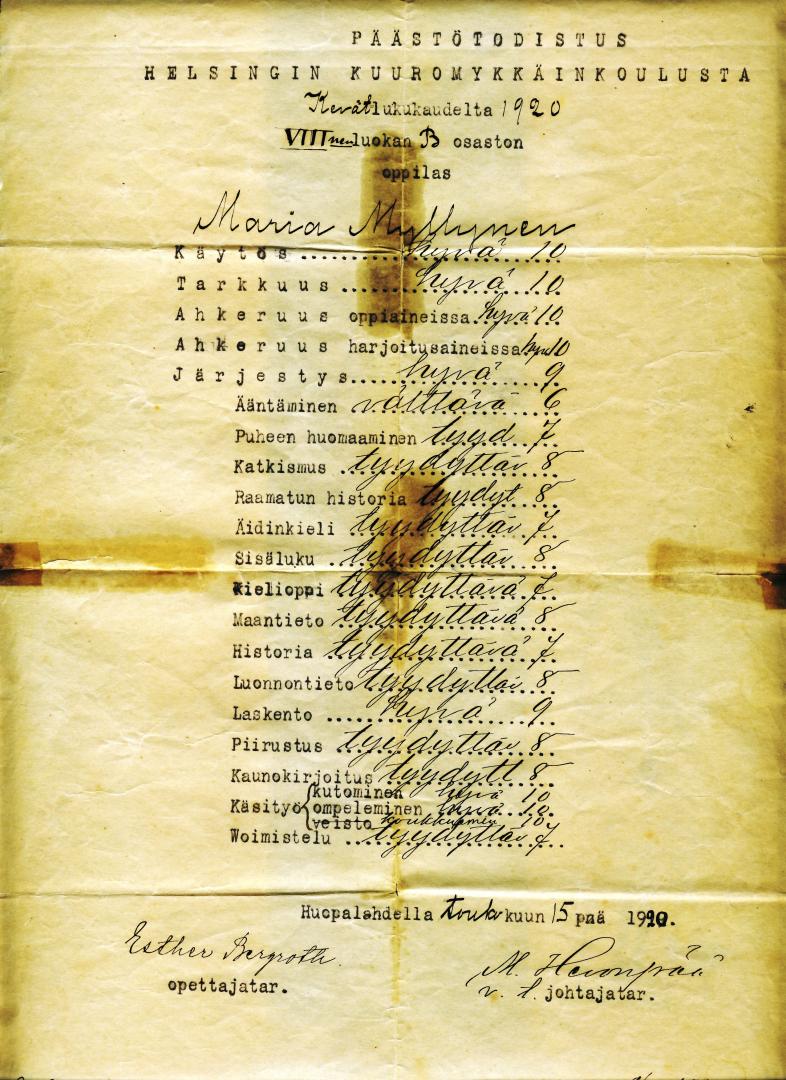 PÄÄSTÖTODISTUS
HELSINGIN KUUROMYKKÄINKOULUSTA
Kevätlukukaudelta 1920
VIIInen luokan B osaston
oppilas
Maria Myllynen
Käytös..........hyvä 10
Tarkkuus........hyvä 10
Ahkeruus oppiaineissa hyvä 10
Ahkeruus harjoitusaineissa hyvä 10
Järjestys.....hyvä 9
Ääntäminen välttävä 6
Puheen huomaaminen tyyd 7
Katkismus tyydyttäv 8
Raamatun historia tyydyt 8
Äidinkieli tyydyttäv 7
Sisäluku tyydyttäv 8
Kielioppi tyydyttävä 7
Maantieto tyydyttävä 8
Historia tyydyttävä 7
Luonnontieto tyydyttäv 8
Laskento hyvä 9
Piirustus tyydyttäv 8
Kaunokirjoitus tyydytt 8
kutominen hyvä 10
Käsityö ompeleminen hyvä 10
veisto 10
Woimistelu tyydyttäv 7
Huopalahdella toukokuun 15 pnä 1920.
Esther Bergroth.
opettajatar.
M. Hevonpää
v. t. johtajatar.